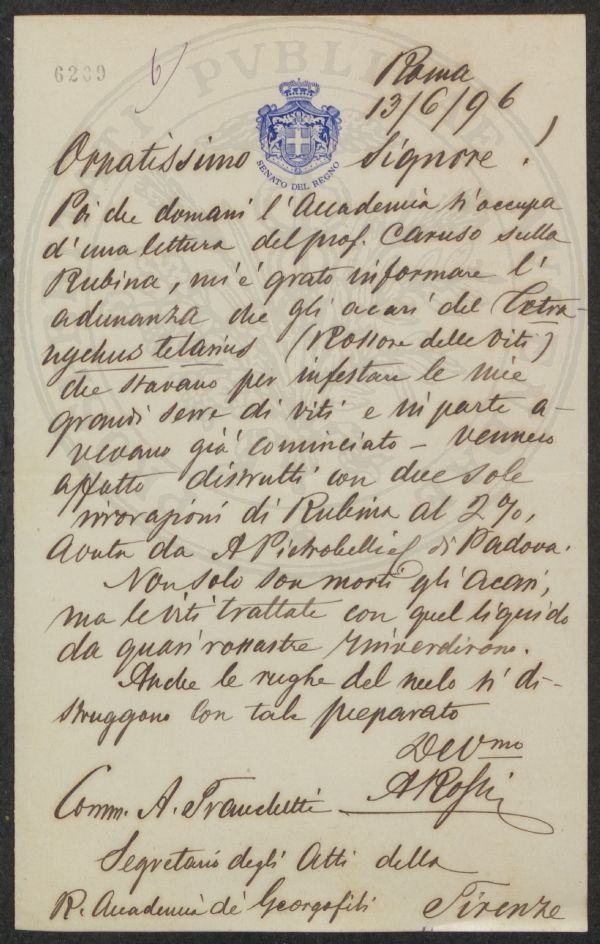 6209
6)
Roma
13/6/96
SENATO DEL REGNO
Ornatissimo Signore!
Poi che domani l'Accademia si occupa
d'una lettura del prof. Caruso sulla
Rubina, mi è grato informare l'
adunanza che gli acari del Tetra-
nychus telarius (Rossore delle Viti)
che stavano per infestare le mie
grandi serre di viti e in parte a-
vevano già cominciato - vennero
affatto distrutti con due sole
irrorazioni di Rubina al 2%,
avuta da A Pietrobelli di Padova.
Non solo son morti gli acari,
ma le viti trattate con quel liquido
da quasi rossastre rinverdirono.
Anche le rughe del melo si di-
struggono con tale preparato
Devmo
ARossi
Comm. A. Franchetti
Segretario degli Atti della
R. Accademia de' Georgofili Firenze